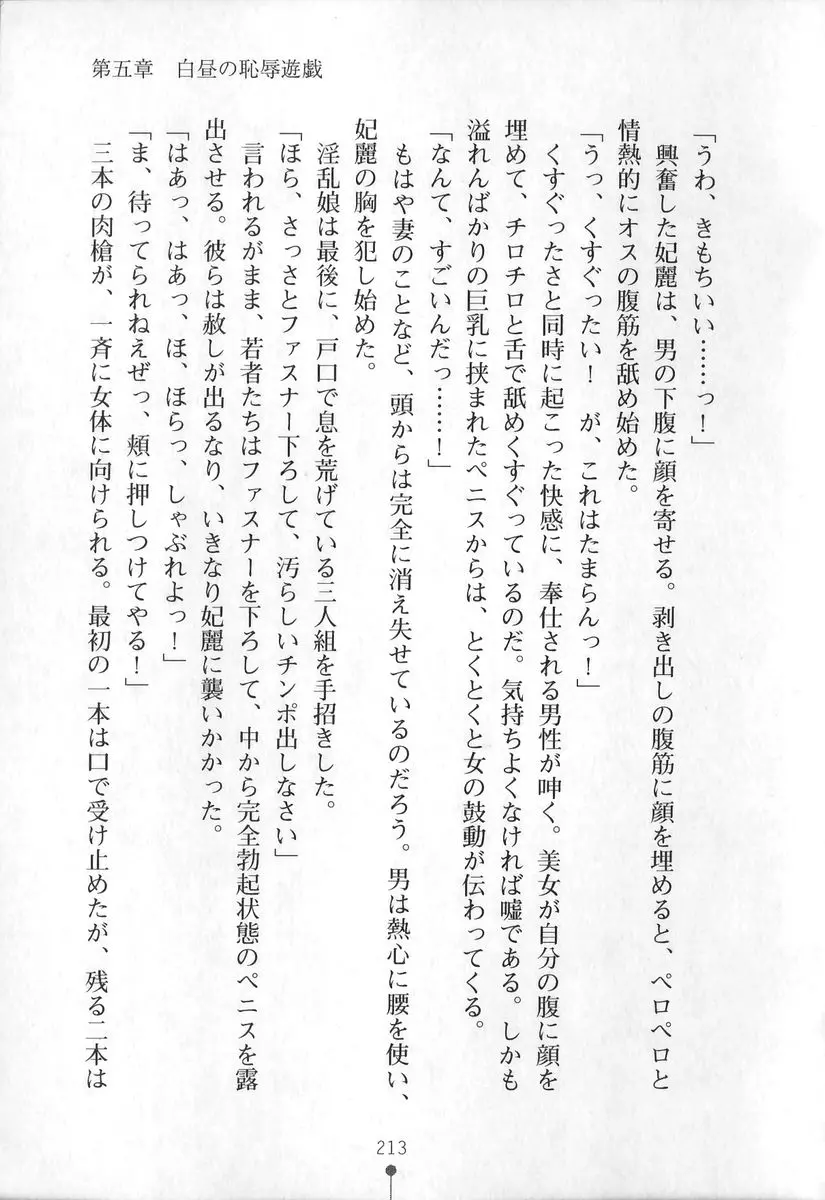 第五章　白昼の恥辱遊戯
「うわ、きもちいい……っ！」
　興奮した妃麗は、男の下腹に顔を寄せる。剥き出しの腹筋に顔を埋めると、ペロペロと
情熱的にオスの腹筋を舐め始めた。
「うっ、くすぐったい！　が、これはたまらんっ！」
　くすぐったさと同時に起こった快感に、奉仕される男性が呻く。美女が自分の腹に顔を
埋めて、チロチロと舌で舐めくすぐっているのだ。気持ちよくなければ嘘である。しかも
溢れんばかりの巨乳に挟まれたペニスからは、とくとくと女の鼓動が伝わってくる。
「なんて、すごいんだっ……！」
　もはや妻のことなど、頭からは完全に消え失せているのだろう。男は熱心に腰を使い、
妃麗の胸を犯し始めた。
　淫乱娘は最後に、戸口で息を荒げている三人組を手招きした。
「ほら、さっさとファスナー下ろして、汚らしいチンポ出しなさい」
　言われるがまま、若者たちはファスナーを下ろして、中から完全勃起状態のペニスを露
出させる。彼らは赦しが出るなり、いきなり妃麗に襲いかかった。
「はあっ、はあっ、ほ、ほらっ、しゃぶれよっ！」
「ま、待ってられねえぜっ、頬に押しつけてやる！」
　三本の肉槍が、一斉に女体に向けられる。最初の一本は口で受け止めたが、残る二本は
213